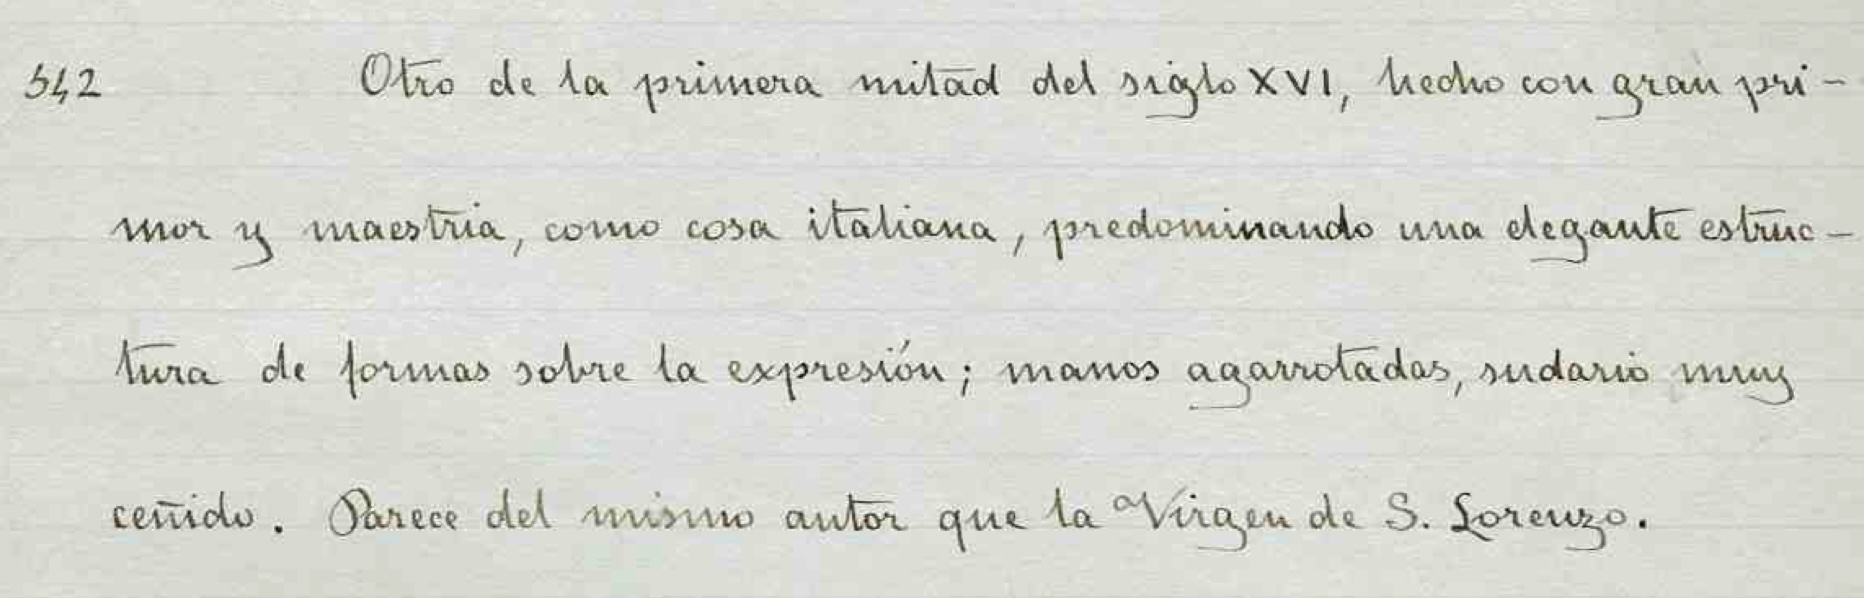 542 Otro de la primera mitad del siglo XVI, hecho con gran pri-
mor y maestria, como cosa italiana, predominando una elegante estruc-
tura de formas sobre la expresión; manos agarrotadas, sudario muy
ceñido. Parece del mismo autor que la Virgen de S. Lorenzo.